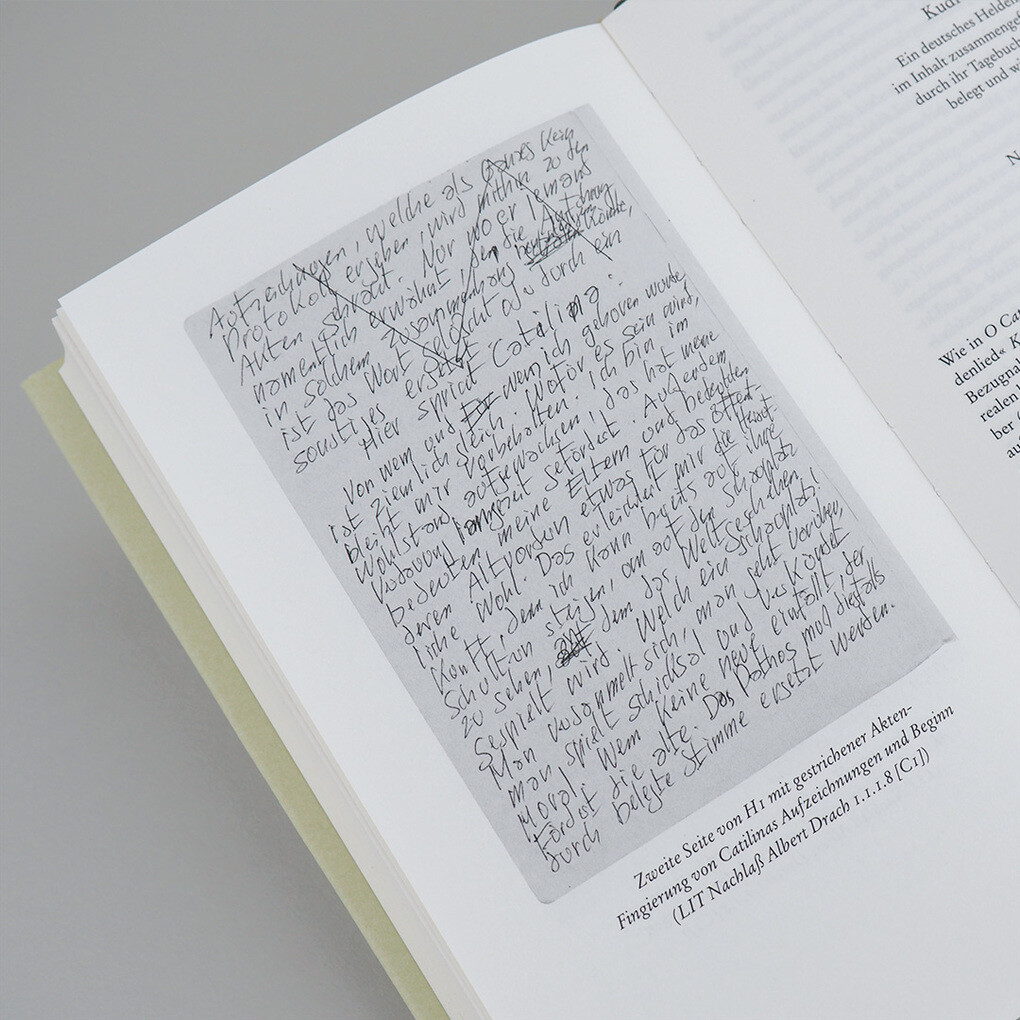 Aufzeichnungen, welche als Ganzes kein
Protokoll ergeben, wird mithin zu den
Akten gebracht. Nur wo er jemand
namentlich erwähnt, den die
in solchem Zusammenhang könnte,
ist das Wort gelöscht oder durch ein
sonstiges ersetzt.
Hier spricht Catilina:
Von wem und wem ich geboren wurde,
ist ziemlich gleich. Wofür es sein wird,
bleibt mir vorbehalten. Ich bin im
Wohlstand aufgewachsen, das hat meine
gefördert. Außerdem
bedeuten meine Eltern und bedeutten
deren Altvordern etwas für das öffent-
liche Wohl. Das erleichtert mir die
kunft, denn ich kann bereits auf ihre
Schultern steigen, um auf den Schauplatz
zu sehen, auf dem das Weltgeschehen
gespielt wird. Welch ein Schauplatz!
Man versammelt sich, man geht vorüber,
man spielt Schicksal und verkörpert
Moral. Wem keine neue einfällt, der
fördert die alte. Das Pathos muß diesfalls
durch belegte Stimme ersetzt werden.
Zweite Seite von H1 mit gestrichener Akten-
Fingierung von Catilinas Aufzeichnungen und Beginn
(LIT Nachlaß Albert Drach 1.1.1.8 [C1])
Ein deutsches Helden
im Inhalt zusammengef
durch ihr Tagebuch
belegt und wi
N
Wie in O Cat
denlied« K
Bezugnal
realen
ber
au